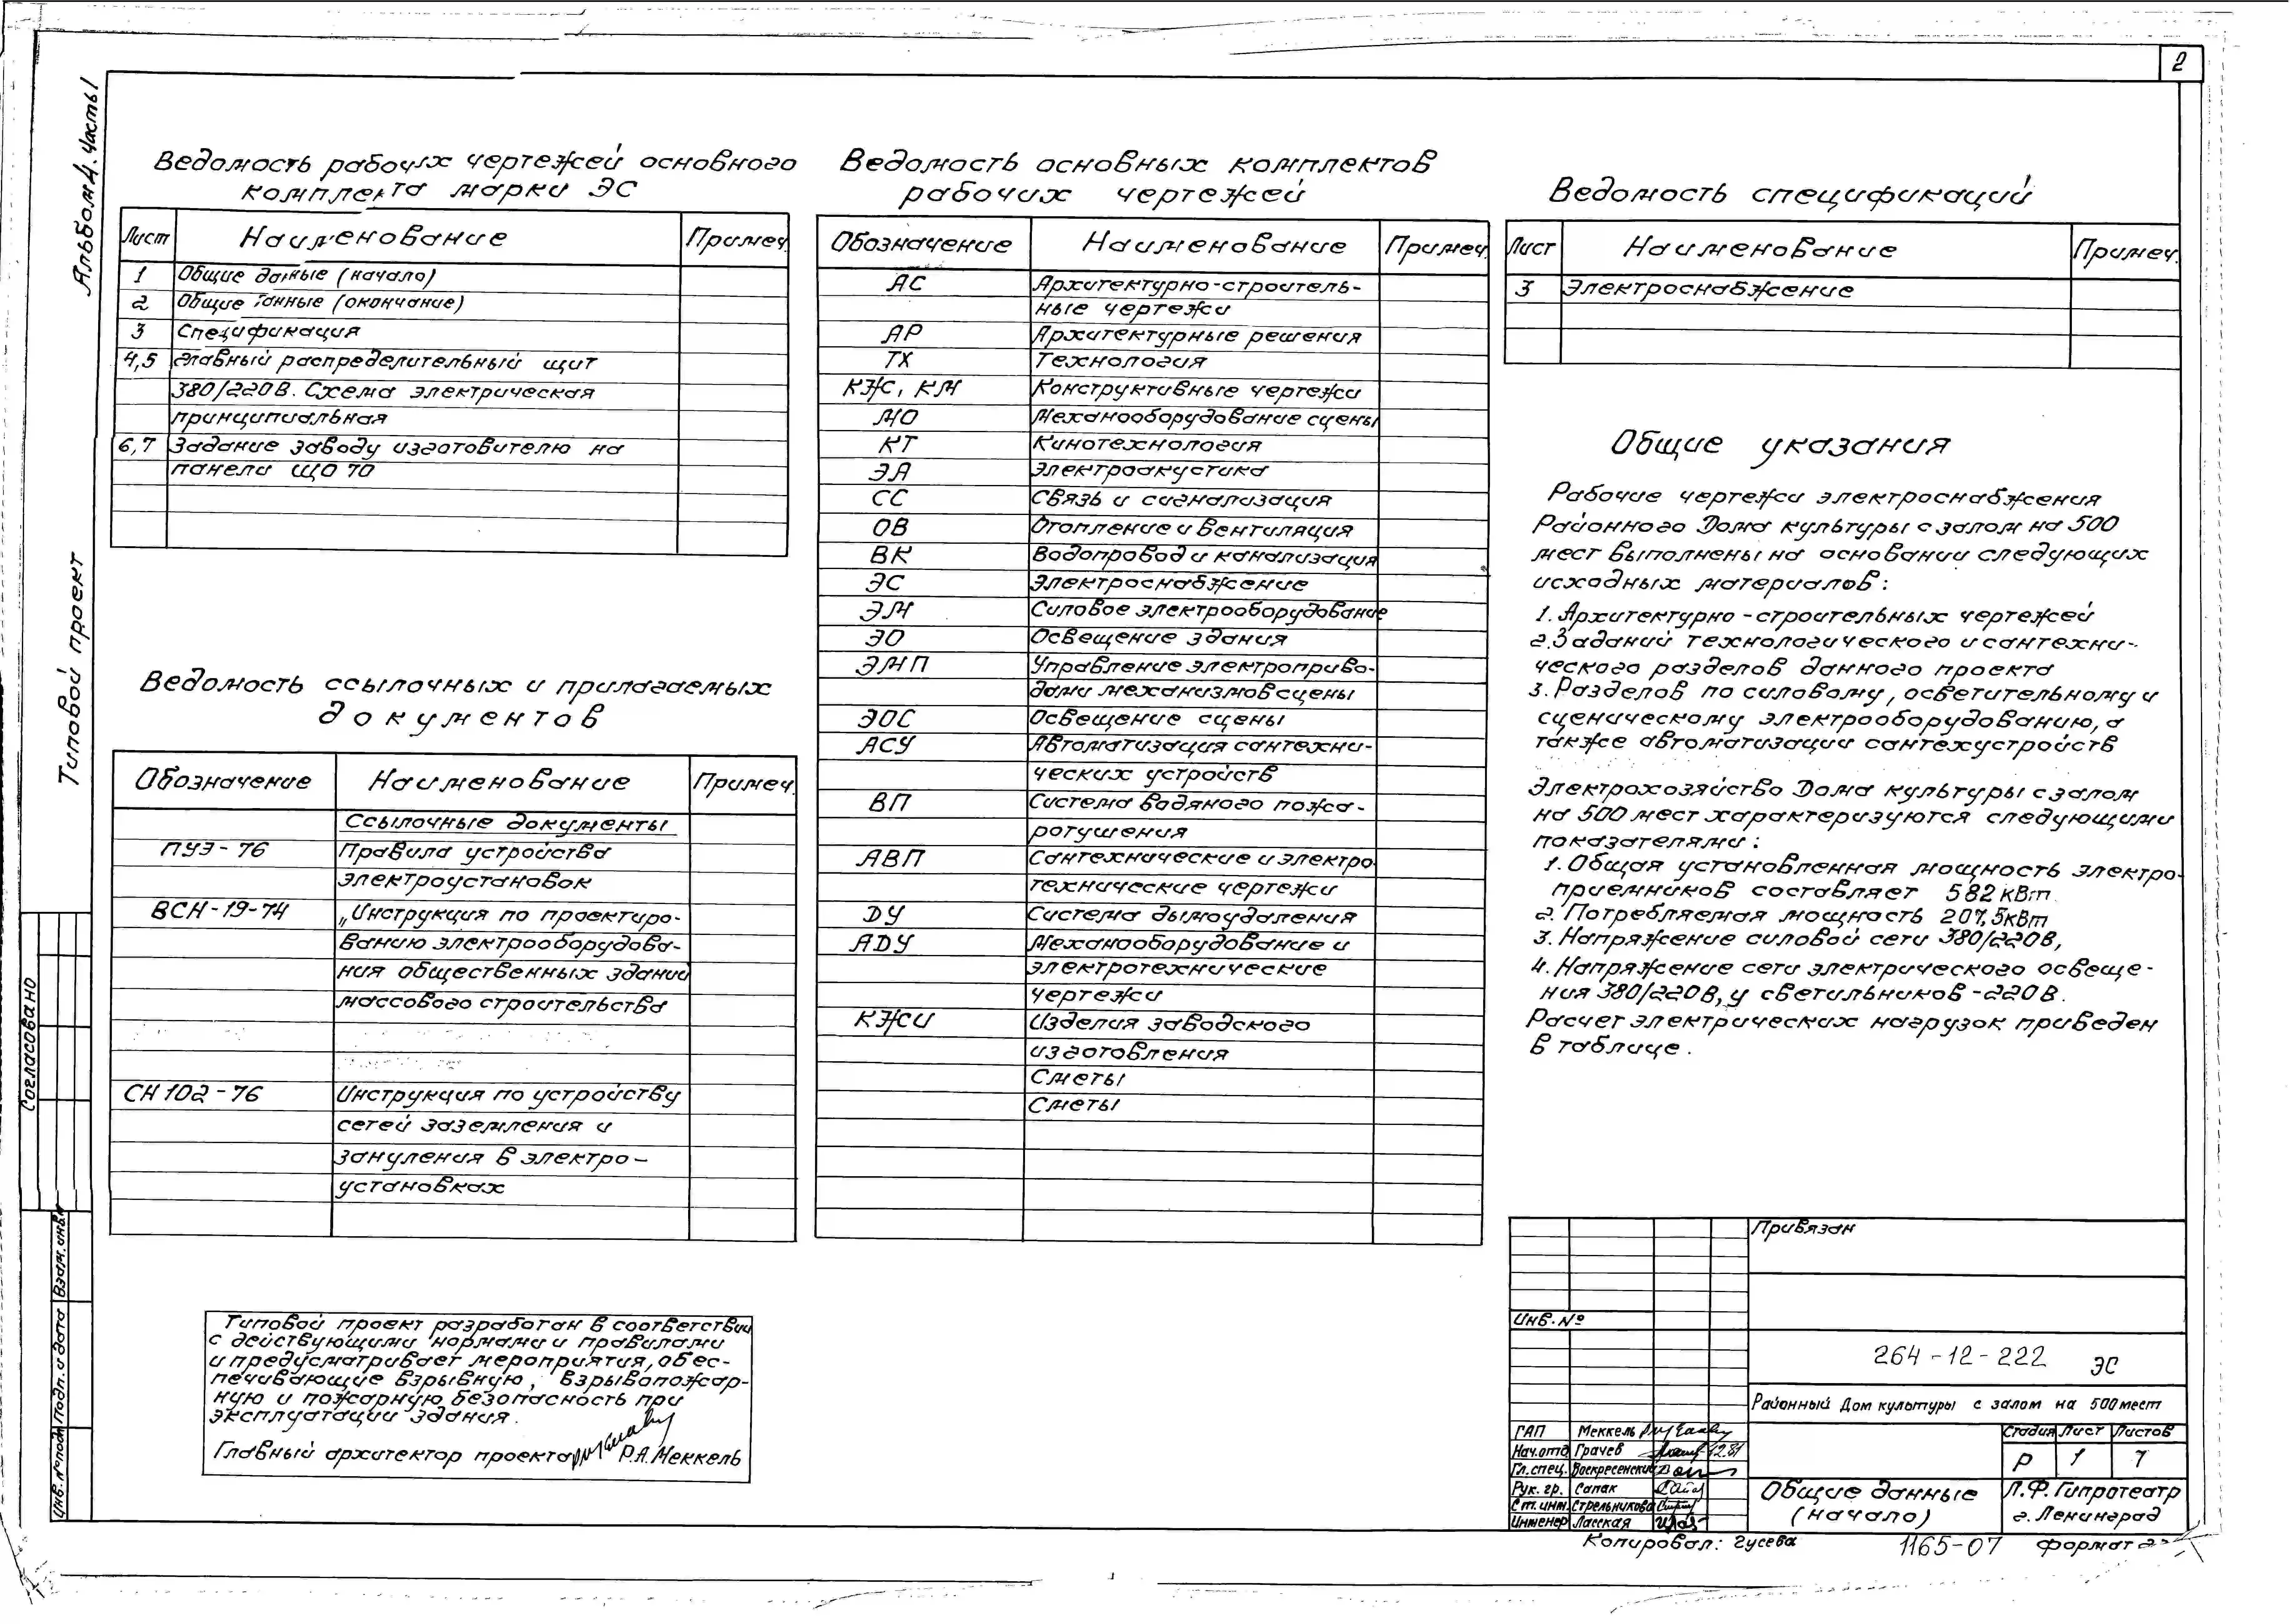 2
Альбом 4. Часть 1
Типовой проект
Согласовано
Взам. инв.№
Подп. и дата
Инв.№ подл.
Ведомость рабочих чертежей основного
комплекта марки ЭС
Лист Наименование Примеч.
1 Общие данные (начало)
2 Общие данные (окончание)
3 Спецификация
4,5 Главный распределительный щит
380/220В. Схема электрическая
принципиальная
6,7 Задание заводу изготовителю на
панели ЩО 70
Ведомость ссылочных и прилагаемых
документов
Обозначение Наименование Примеч.
Ссылочные документы
ПУЭ-76 Правила устройства
электроустановок
ВСН-19-74 „Инструкция по проектиро-
ванию электрооборудова-
ния общественных зданий
массового строительства
СН 102-76 Инструкция по устройству
сетей заземления и
зануления в электро-
установках
Типовой проект разработан в соответствии
с действующими нормами и правилами
и предусматривает мероприятия, обес-
печивающие взрывную, взрывопожар-
ную и пожарную безопасность при
эксплуатации здания.
Главный архитектор проекта Р.А.Меккель
Ведомость основных комплектов
рабочих чертежей
Обозначение Наименование Примеч.
АС Архитектурно-строитель-
ные чертежи
АР Архитектурные решения
ТХ Технология
КЖ, КМ Конструктивные чертежи
МО Механооборудование сцены
КТ Кинотехнология
ЭА Электроакустика
СС Связь и сигнализация
ОВ Отопление и вентиляция
ВК Водопровод и канализация
ЭС Электроснабжение
ЭМ Силовое электрооборудование
ЭО Освещение здания
ЭМП Управление электроприво-
дами механизмов сцены
ЭОС Освещение сцены
АСУ Автоматизация сантехни-
ческих устройств
ВП Система водяного пожа-
ротушения
АВП Сантехнические и электро
технические чертежи
ДУ Система дымоудаления
АДУ Механооборудование и
электротехнические
чертежи
КЖИ Изделия заводского
изготовления
Сметы
Сметы
Ведомость спецификаций
Лист Наименование Примеч.
3 Электроснабжение
Общие указания
Рабочие чертежи электроснабжения
Районного Дома культуры с залом на 500
мест выполнены на основании следующих
исходных материалов:
1. Архитектурно-строительных чертежей
2. Заданий технологического и сантехни-
ческого разделов данного проекта
3. Разделов по силовому, осветительному и
сценическому электрооборудованию, а
также автоматизации сантехустройств
Электрохозяйство Дома культуры с залом
на 500 мест характеризуются следующими
показателями:
1. Общая установленная мощность электро-
приемников составляет 582 кВт.
2. Потребляемая мощность 207,5кВт
3. Напряжение силовой сети 380/220В,
4. Напряжение сети электрического освеще-
ния 380/220В, у светильников-220В.
Расчет электрических нагрузок приведен
в таблице.
Привязан
Инв.№
264-12-222 ЭС
Районный Дом культуры с залом на 500 мест
ГАП Меккель
Нач.отд Грачев 12.81
Гл.спец. Воскресенский
Рук. гр. Сапак
Ст. инж. Стрельникова
Инженер Ласская
Стадия Лист Листов
Р 1 7
Общие данные
(начало)
Л.Ф. Гипротеатр
г. Ленинград
Копировал: Гусева 1165-07 формат